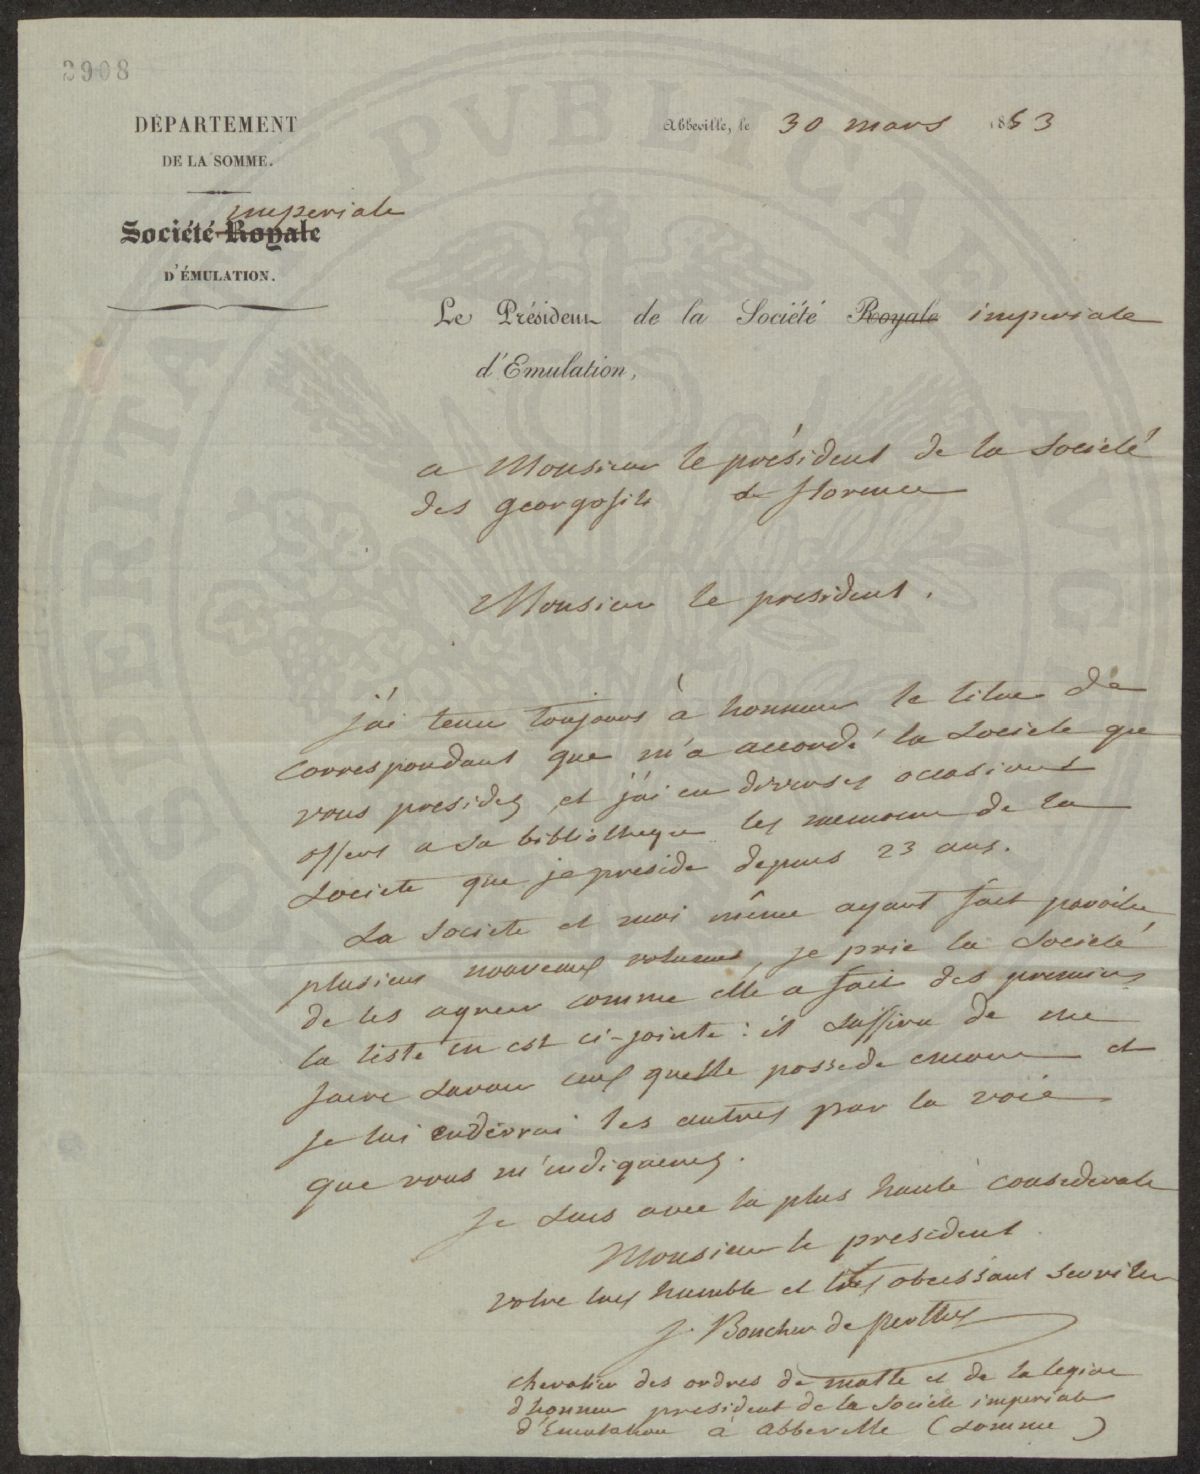 2908
DÉPARTEMENT
DE LA SOMME.
imperiale
Société Royale
D'ÉMULATION.
Abbeville, le 30 mars 1853
Le Président de la Société Royale imperiale
d'Emulation,
a Monsieur le président de la Société
des georgofili de florence
Monsieur le president.
j'ai tenu toujours à honneur le titre de
correspondant que m'a accordé la Societe que
vous presidez et j'ai en diverses occasions
offert a sa bibliotheque les memoires de la
Societe que je preside depuis 23 ans.
La Societe et moi même ayant fait paroitre
plusieurs nouveaux volumes, je prie la Societé
de les agreer comme elle a fait des premiers
la liste en est ci-jointe : il suffira de me
faire savoir ceux quelle possede encore et
je lui enverrai les autres par la voie
que vous m'indiquerez.
Je suis avec la plus haute consideration
Monsieur le president
votre tres humble et tres obeissant serviteur
J. Boucher de Perthes
chevalier des ordres de malte et de la legion
d'honneur president de la Societe imperiale
d'Emulation à abbeville (Somme)
PROSPERITATI PVBLICAE AVGENDAE